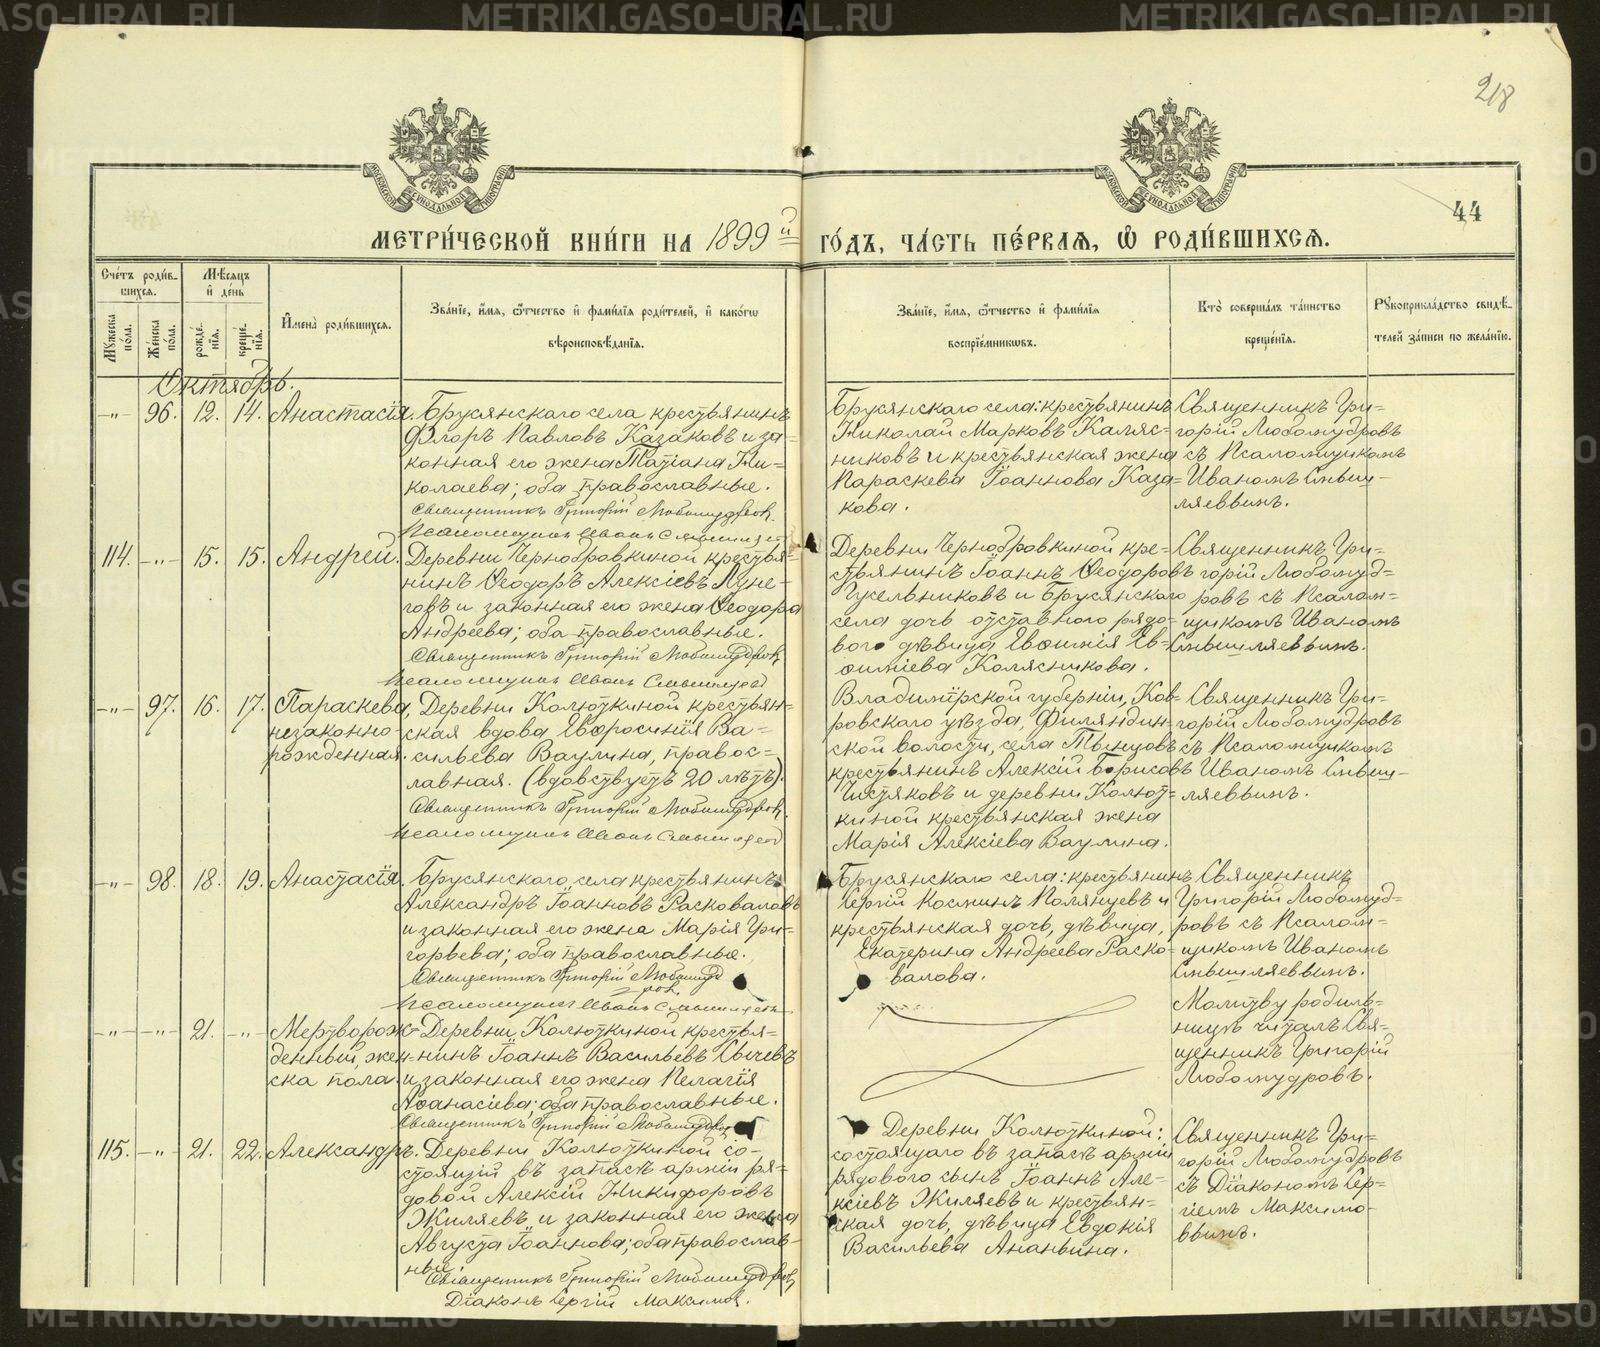 218
44
МЕТРИ́ЧЕСКОЙ КНИ́ГИ НА 1899й ГО́ДЪ, ЧА́СТЬ ПЕ́РВАЯ, Ѡ РОДИ́ВШИХСЯ.
Сче́тъ роди́в-
шихся.
Мѣ́сяцъ
и҆ де́нь
Мꙋжеска по́ла.
Же́нска по́ла.
рожде́-
нїѧ.
креще́-
нїѧ.
И҆мена̀ роди́вшихся.
Зва́нїе, и҆́мѧ, ѻ҆́тчество и҆ фами́лїѧ роди́телей, и҆ како́гѡ
вѣроисповѣ́данїѧ.
Зва́нїе, и҆́мѧ, ѻ҆́тчество и҆ фами́лїѧ
воспрїе́мникѡвъ.
Кто̀ соверша́лъ та́инство
креще́нїѧ.
Рꙋкоприкла́дство свидѣ́-
телей за́писи по жела́нїю.
Октябрь.
-"- 96. 12. 14. Анастасія.
Брусянскаго села крестьянинъ
Флоръ Павловъ Казаковъ и за-
конная его жена Татіана Ни-
колаева; оба православные.
Священникъ Григорій Любомудровъ.
Псаломщикъ Иванъ Смышляевъ
Брусянскаго села: крестьянинъ
Николай Марковъ Каляс-
никовъ и крестьянская жена
Параскева Іоаннова Каза-
кова.
Священникъ Гри-
горій Любомудровъ
съ Псаломщикомъ
Иваномъ Смыш-
ляевымъ.
114. -"- 15. 15. Андрей.
Деревни Чернобровкиной крестья-
нинъ Ѳеодоръ Алексіевъ Луне-
говъ и законная его жена Ѳеодора
Андреева; оба православные.
Священникъ Григорій Любомудровъ
Псаломщикъ Иванъ Смышляевъ
Деревни Чернобровкиной кре-
стьянинъ Іоаннъ Ѳеодоровъ
Гусельниковъ и Брусянскаго
села дочь отставного рядо-
вого дѣвица Евѳимія Ев-
ѳиміева Колясникова.
Священникъ Гри-
горій Любомуд-
ровъ съ Псалом-
щикомъ Иваномъ
Смышляевымъ.
-"- 97. 16. 17. Параскева,
незаконно-
рожденная.
Деревни Колюткиной крестьян-
ская вдова Евфросинія Ва-
сильева Ваулина, правос-
лавная. (вдовствуетъ 20 лѣтъ).
Священникъ Григорій Любомудровъ.
Псаломщикъ Иванъ Смышляевъ
Владимірской губерніи, Ков-
ровскаго уѣзда, Филяндин-
ской волости, села Тынцовъ
крестьянинъ Алексій Борисовъ
Чистяковъ и деревни Колют-
киной крестьянская жена
Марія Алексіева Ваулина.
Священникъ Гри-
горій Любомудровъ
съ Псаломщикомъ
Иваномъ Смыш-
ляевымъ.
-"- 98. 18. 19. Анастасія.
Брусянскаго села крестьянинъ
Александръ Іоанновъ Расковаловъ
и законная его жена Марія Гри-
горьева; оба православные.
Священникъ Григорій Любомуд
ровъ.
Псаломщикъ Иванъ Смышляевъ
Брусянскаго села: крестьянинъ
Сергій Косминъ Полянцевъ и
крестьянская дочь, дѣвица,
Екатерина Андреева Раско-
валова.
Священникъ
Григорій Любомуд-
ровъ съ Псалом-
щикомъ Иваномъ
Смышляевымъ.
-"- -"- 21. -"- Мертворож-
денный, жен-
ска пола.
Деревни Колюткиной крестья-
нинъ Іоаннъ Васильевъ Сычевъ
и законная его жена Пелагія
Аѳанасіева; оба православные.
Священникъ Григорій Любомудровъ
Молитву родиль-
ницѣ читалъ Свя-
щенникъ Григорій
Любомудровъ.
115. -"- 21. 22. Александръ.
Деревни Колюткиной со-
стоящій въ запасѣ арміи ря-
довой Алексій Никифоровъ
Жиляевъ и законная его жена
Августа Іоаннова; оба православ-
ные.
Священникъ Григорій Любомудровъ,
Діаконъ Сергій Максимов.
Деревни Колюткиной:
состоящаго въ запасѣ арміи
рядового сынъ Іоаннъ Але-
ксіевъ Жиляевъ и крестьян-
ская дочь, дѣвица Евдокія
Васильева Ананьина.
Священникъ Гри-
горій Любомудровъ
съ Діакономъ Сер-
гіемъ Максимо-
вымъ.
METRIKI.GASO-URAL.RU